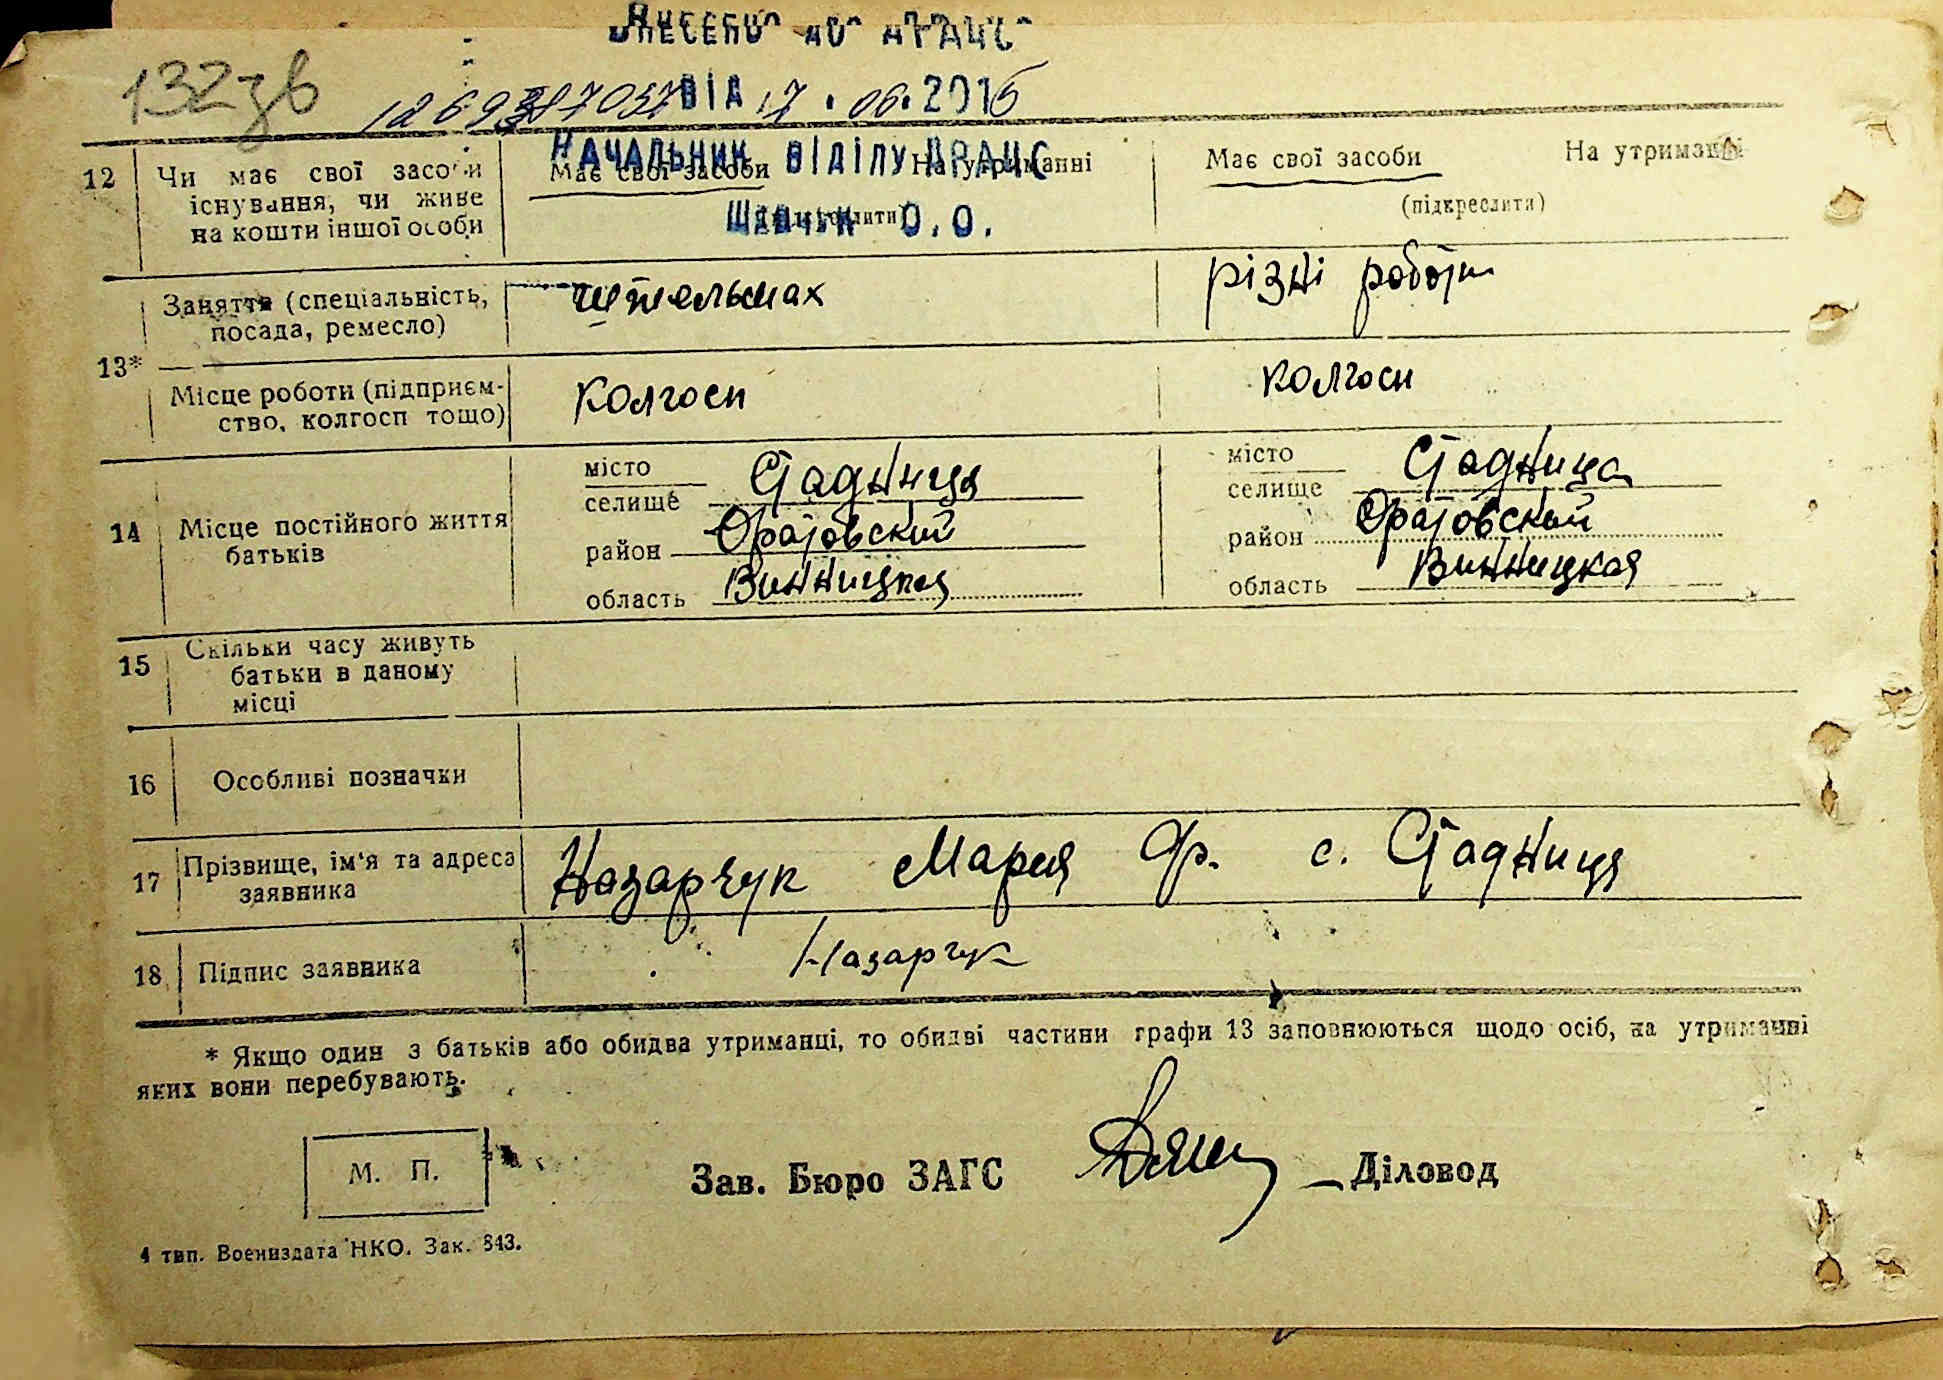 132зв
Внесено до ДРАЦС
від 17.06.2015
Начальник відділу ДРАЦС
О.О.
12 Чи має свої засоби існування, чи живе на кошти іншої особи
Має свої засоби На утриманні
(підкреслити)
Має свої засоби На утриманні
(підкреслити)
13*
Заняття (спеціальність,
посада, ремесло)
різні роботи
Місце роботи (підприєм-
ство, колгосп тощо)
колгосп
колгосп
14 Місце постійного життя
батьків
місто
селище Стадниця
район Оратовский
область Винницкая
місто
селище Стадница
район Оратовский
область Винницкая
15 Скільки часу живуть
батьки в даному
місці
16 Особливі позначки
17 Прізвище, ім'я та адреса
заявника
Назарчук Мария Фр. с. Стадниця
18 Підпис заявника Назарчук
* Якщо один з батьків або обидва утриманці, то обидві частини графи 13 заповнюються щодо осіб, на утриманні
яких вони перебувають.
М. П.
Зав. Бюро ЗАГС Діловод
4 тип. Воениздата НКО. Зак. 843.